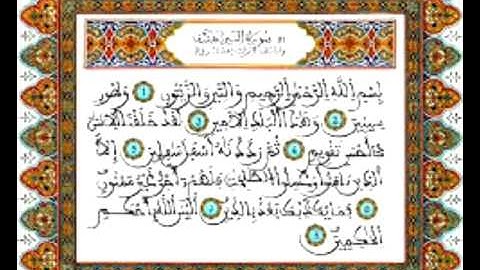 سورة التين
بسم الله الرحمن الرحيم والتين والزيتون 1 وطور
سينين 2 وهذا البلد الامين 3 لقد خلقنا الانسن
في احسن تقويم 4 ثم رددنه اسفل سفلين 5 الا
الذين ءامنوا وعملوا الصلحت فلهم اجر غير ممنون
6 فما يكذبك بعد بالدين 7 اليس الله باحكم
الحكمين 8